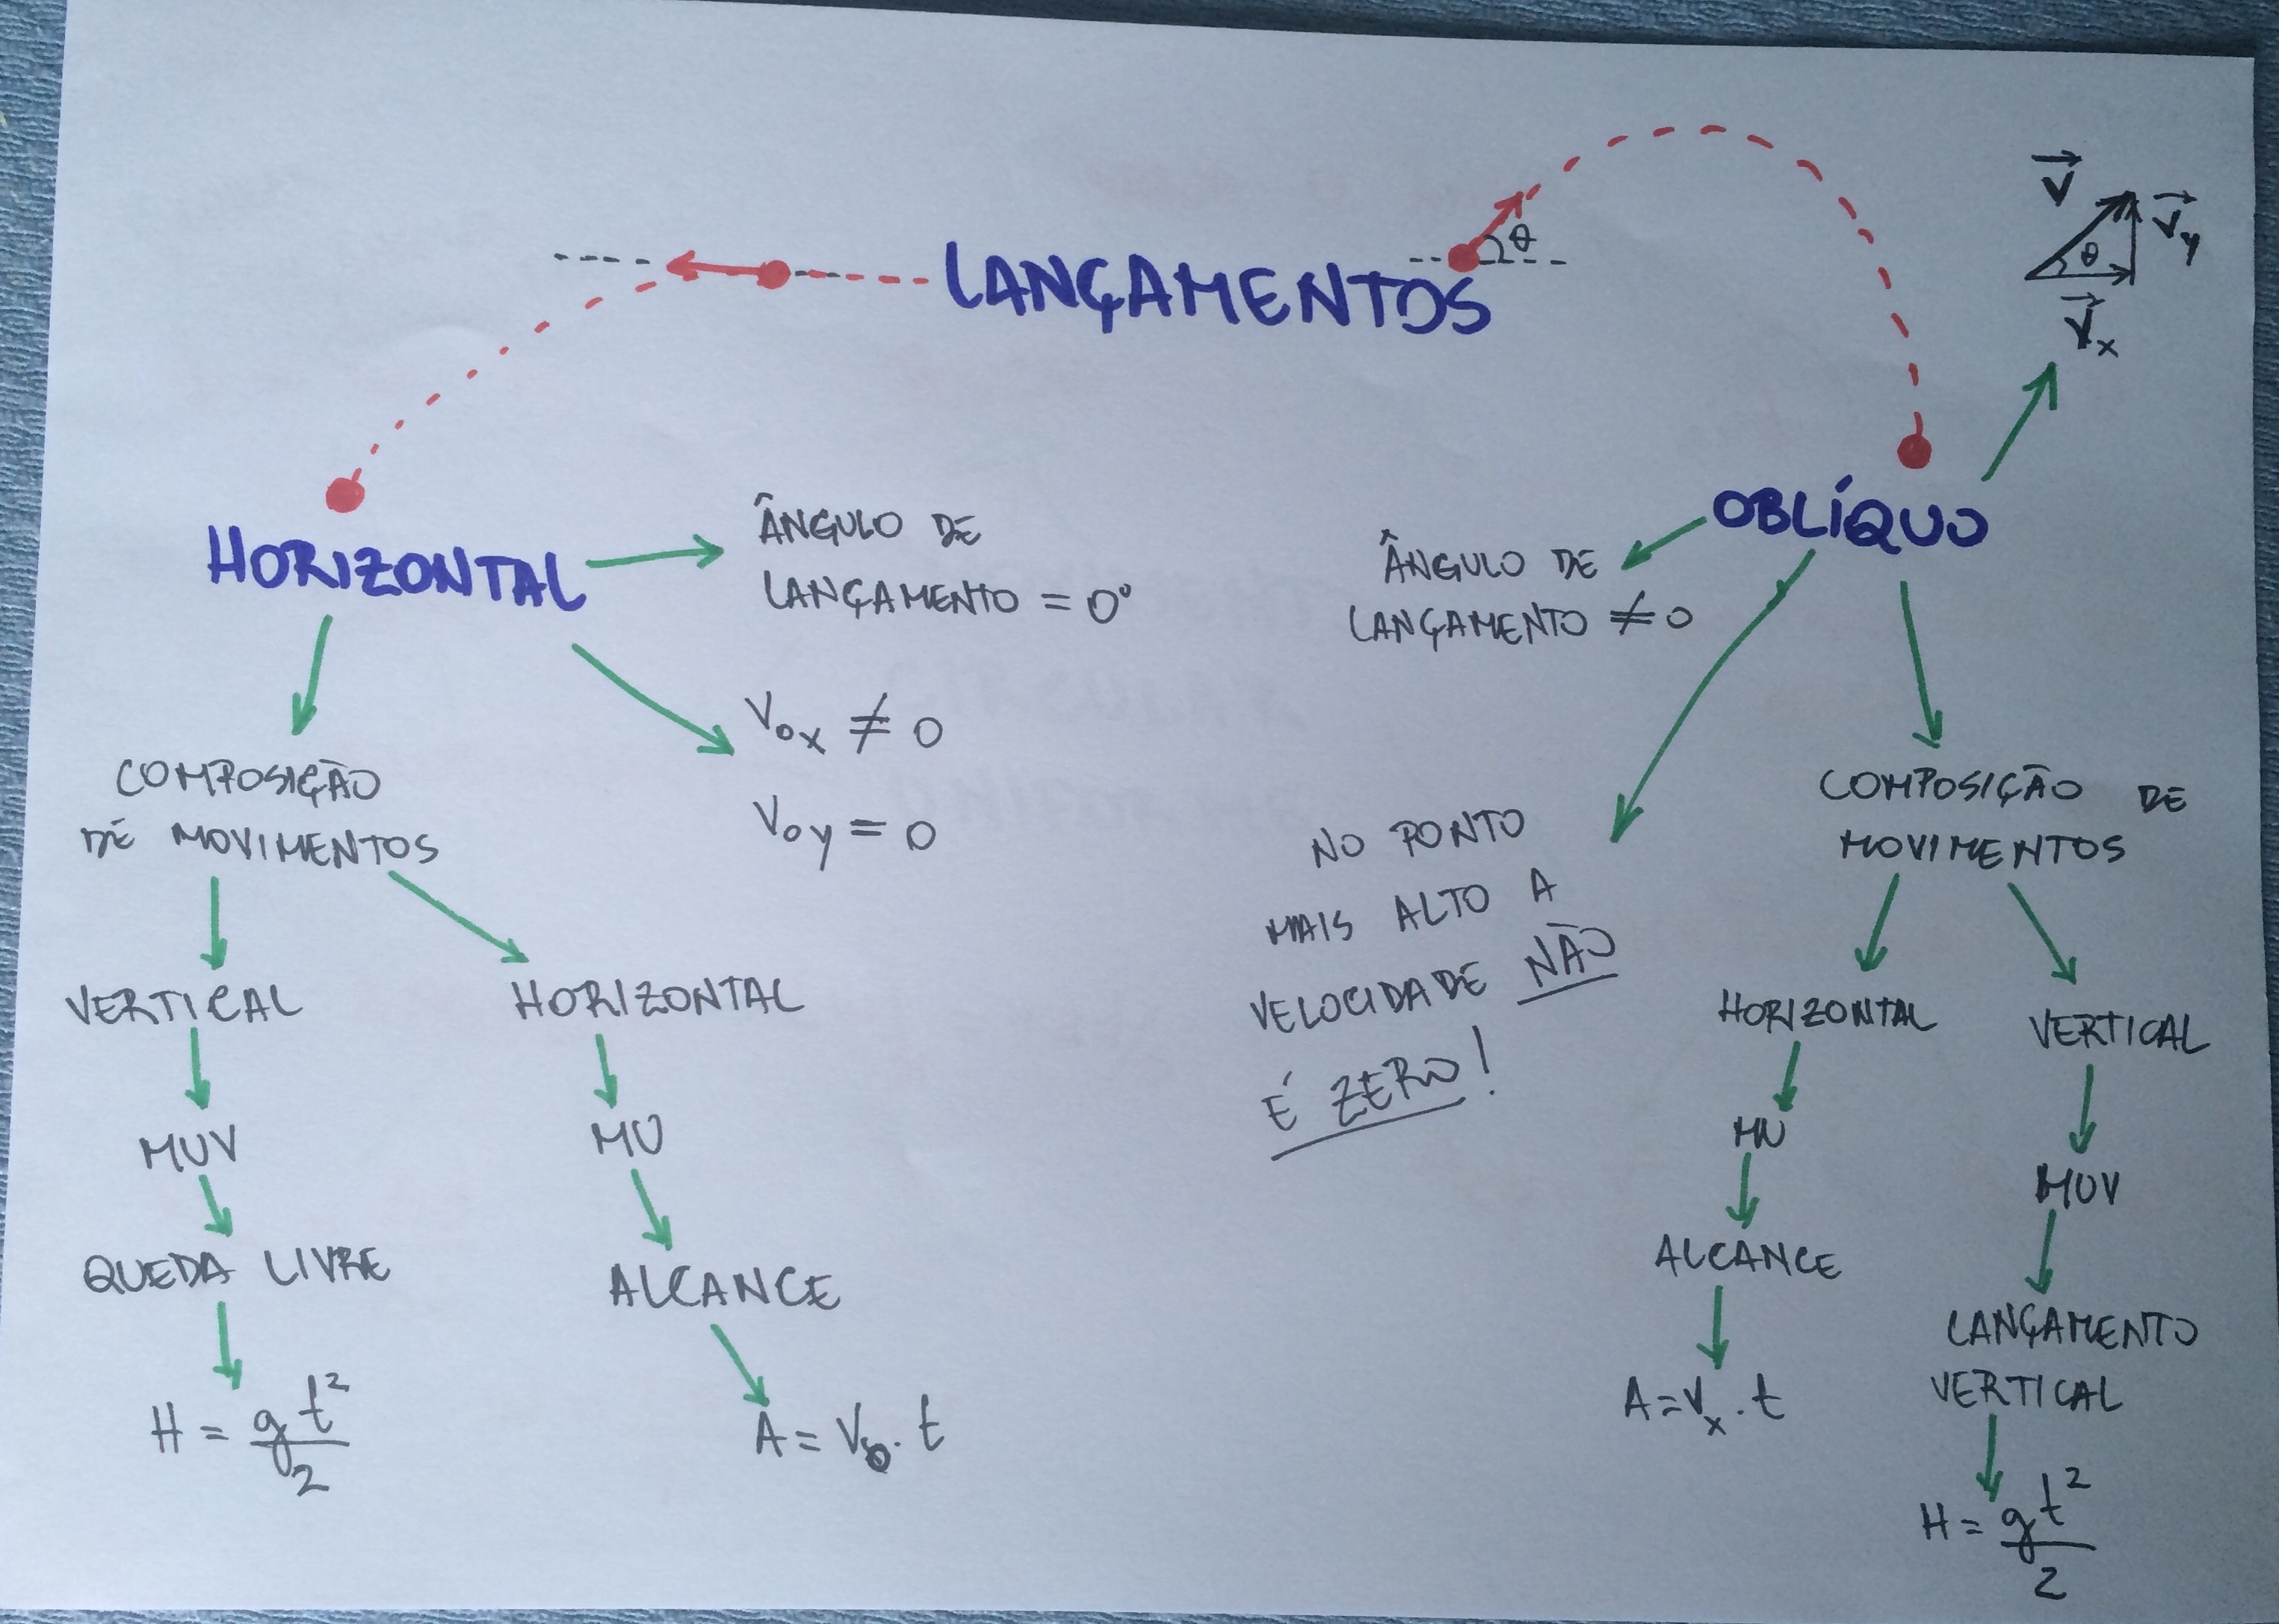 LANÇAMENTOS
θ
V⃗
V⃗y
θ
V⃗x
HORIZONTAL
ÂNGULO DE
LANÇAMENTO = 0°
V₀x ≠ 0
V₀y = 0
COMPOSIÇÃO
DE MOVIMENTOS
VERTICAL
MUV
QUEDA LIVRE
H = gt²/2
HORIZONTAL
MU
ALCANCE
A = V₀ . t
OBLÍQUO
ÂNGULO DE
LANÇAMENTO ≠ 0
NO PONTO
MAIS ALTO A
VELOCIDADE NÃO
É ZERO!
COMPOSIÇÃO DE
MOVIMENTOS
HORIZONTAL
MU
ALCANCE
A = Vx . t
VERTICAL
MUV
LANÇAMENTO
VERTICAL
H = gt²/2